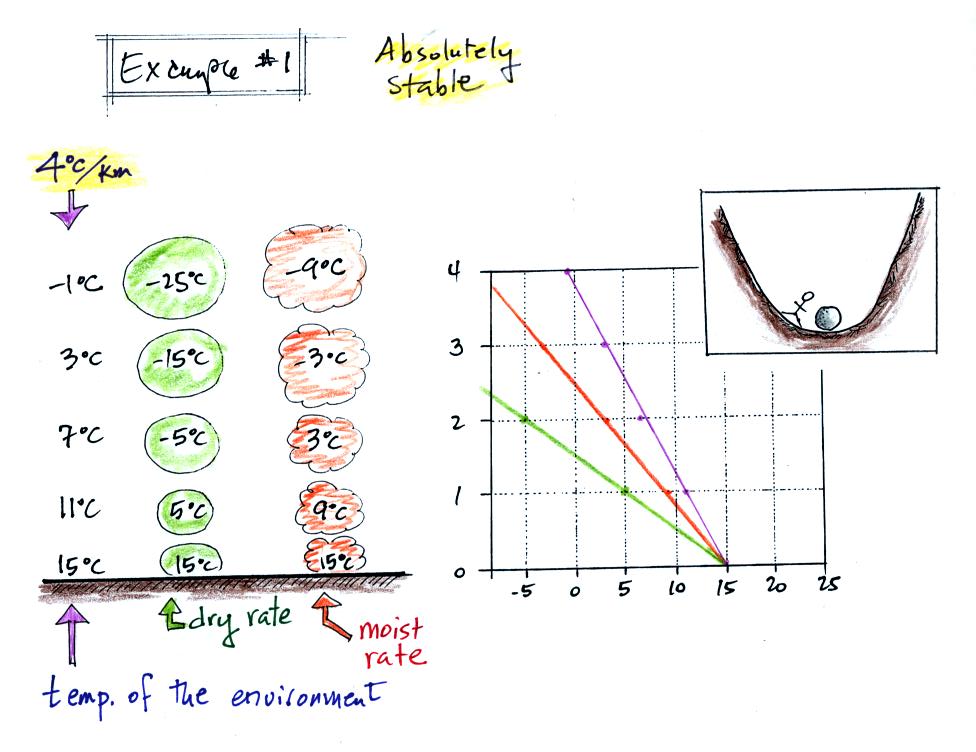 Example #1
Absolutely
Stable
4°C/km
-1°C -25°C -9°C
3°C -15°C -3°C
7°C -5°C 3°C
11°C 5°C 9°C
15°C 15°C 15°C
dry rate
moist
rate
temp. of the environment
4
3
2
1
0
-5 0 5 10 15 20 25